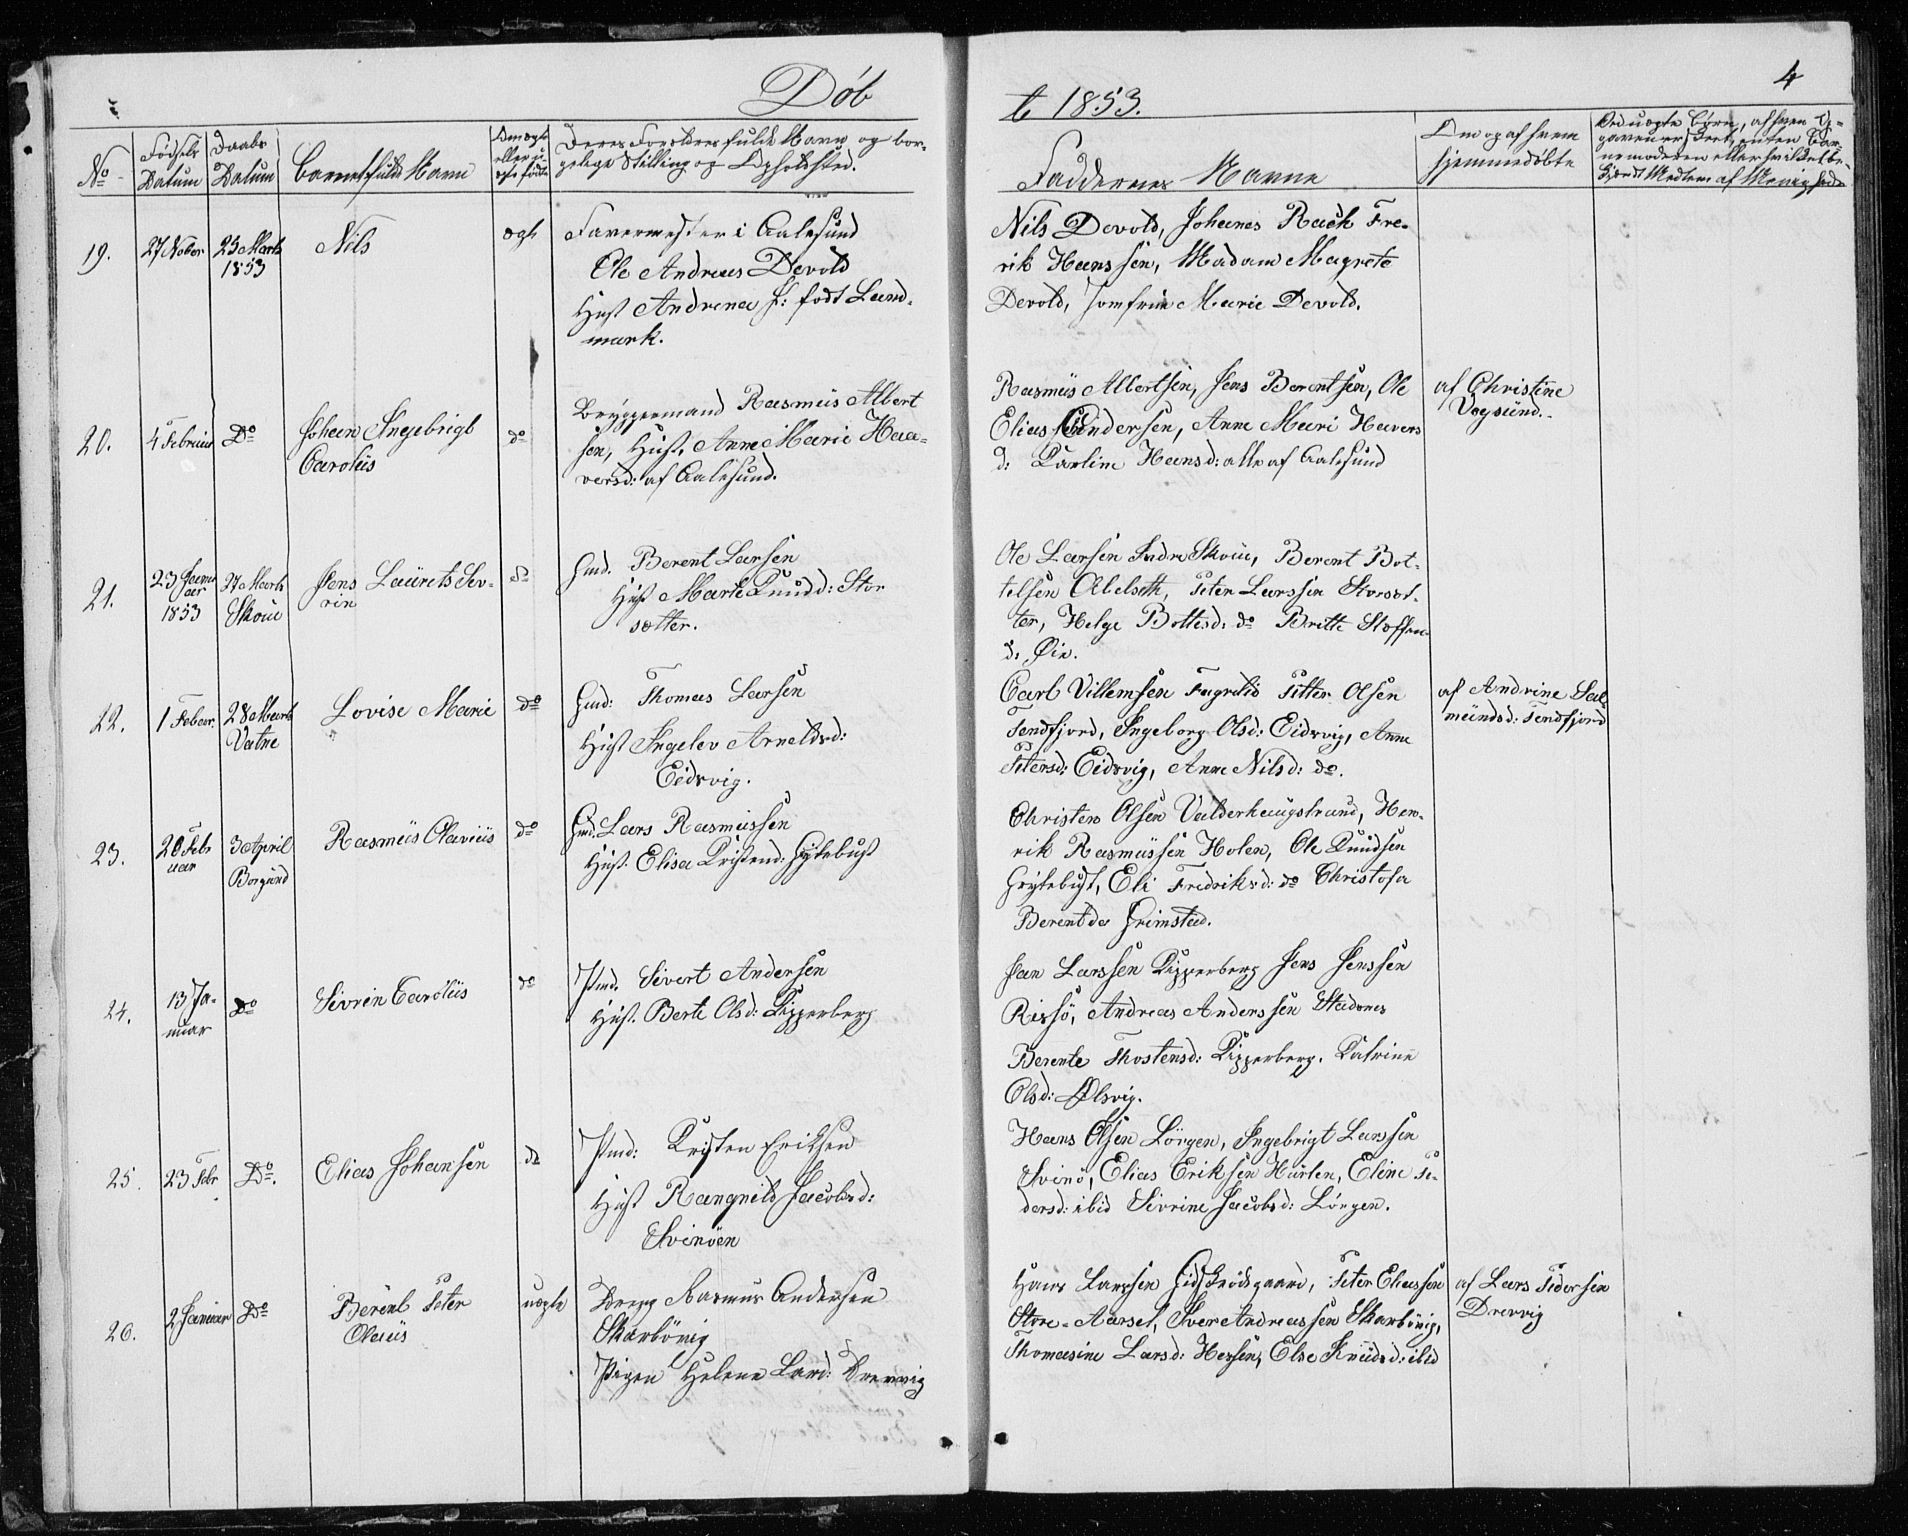 Döb
t 1853.
4
No
Fødsels
Datum
Daabs
Datum
Barnets fulde Navn
Om ægte
eller u-
ægte født
Deres Forældres fulde Navn og bor-
gelige Stilling og Opholdssted.
Faddernes Navne
Om og af hvem
hjemmedöbte
19.
27 Nobvr
23 Marts
1853
Nils
ægte
Farermester i Aalesund
Ole Andreas Devold
Hust Andrena f: født Land-
mark.
Nils Devold, Johanes Rach Fre-
rik Hanssen, Madam Magrete
Devold, Jomfrue Marie Devold.
20.
4 Februar
Do
Johan Ingebrigt
Carolüs
do
Bryggermand Rasmüs Albert
sen, Hust. Anne Marie Haa-
versd: af Aalesund.
Rasmüs Albertsen, Jens Berentsen, Ole
Elias Andersen, Anne Mari Havers
d: Karline Hansd: alle af Aalesund
af Christine
Vegsünd.
21.
23 Janu
ar
1853
27 Marts
Skoue
Jens Laürits Sev-
rin
do
Gmd. Berent Larsen
Hust Marte Knudd: Stor
sætter.
Ole Larsen Indre Skoue, Berent Bot-
telsen Alelseth, Peter Larssen Storset-
ter, Helge Bottesd: do Britte Steffen
d: Öie.
22.
1 Febear.
28 Marts
Vatne
Lovise Marie
do
Gmd: Thomas Larsen
Hust Ingelev Arneldsd:
Eidsvig.
Carl Villemsen Petter Olsen
Tendfjord, Ingeborg Olsd: Eidsvig, Anne
Petersd: Eidsvig, Anne Nilsd: do.
af Andrine Sal
meündsd: Tendfjord
23.
20 Febr
uar
3 April
Borgünd
Rasmüs Olaviüs
do
Gmd. Lars Rasmussen
Hust: Elisa Kristend: Gjütebust
Christen Olsen Valderhaugstrand, Hen-
rik Rasmüssen Holen, Ole Knüdsen
Gjytebust, Eli Fredriksd: do Christofa
Berentdr Grimstad.
24.
13 Ja-
nuar
Do
Sivrin Carolüs
do
Pmd. Sivert Andersen
Hust. Berte Olsd: Kipperberg
Jan Larssen Kipperberg Jens Jenssen
Rissö, Andreas Anderssen Stadsnes
Berente Thostensd: Kipperberg. Katrine
Olsd: Ølsvig.
25.
23 Febr
Do.
Elias Johan sen
do
Pmd: Kristen Eriksen
Hust Rangnild Jacobsd:
Svinöen
Hans Olsen Löngen, Ingebrigt Larssen
Svinö, Elias Eriksen Hürlen, Eline Pe-
dersd: ibid Sivrine Jacobsd: Löngen.
26.
2 Januar
Do
Berent Peter
Olaüs
uægte
Rasmus Andersen
Skarbövig
Pigen Helene Larsd: Drevvig
Hans Larssen Peter Eliassen
Store-Aarset, Iver Andreassen Skarbövig,
Thomasine Larsd: Hessen, Else Knüdsd: ibid
af Lars Pedersen
Drevvig